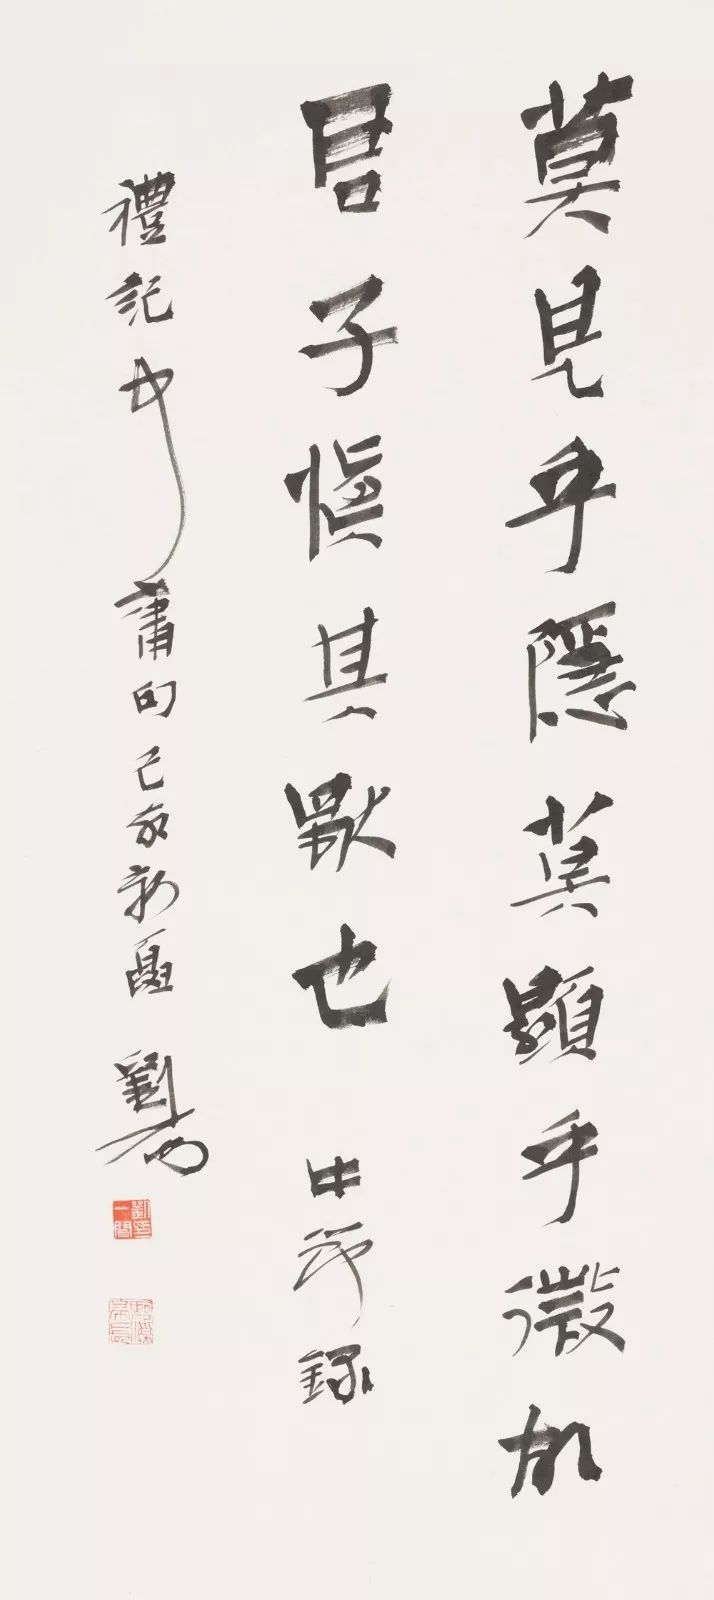 莫見乎隱莫顯乎微故
君子慎其獨也 中節錄
禮記中庸句己亥新夏劉